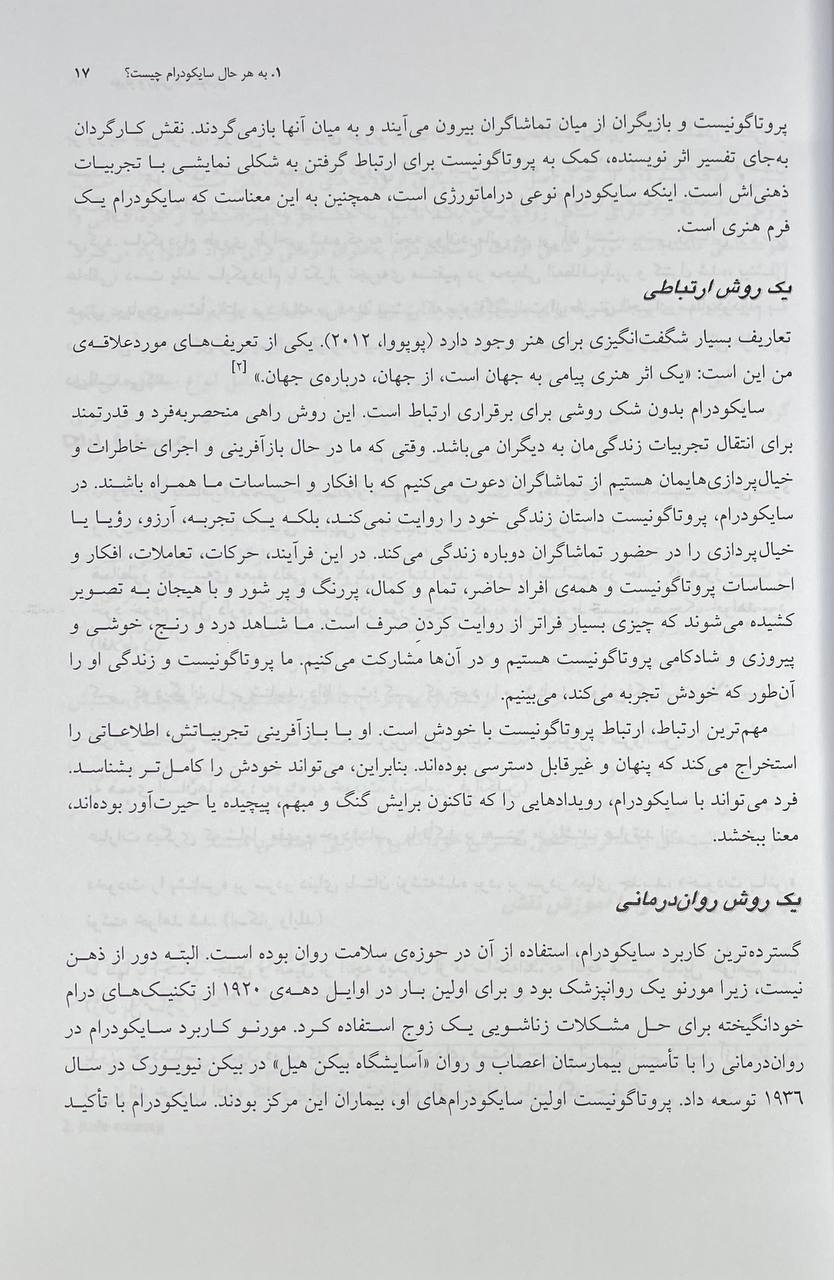 ۱. به هر حال سایکودرام چیست؟ ۱۷
پروتاگونیست و بازیگران از میان تماشاگران بیرون می‌آیند و به میان آنها بازمی‌گردند. نقش کارگردان
به‌جای تفسیر اثر نویسنده، کمک به پروتاگونیست برای ارتباط گرفتن به شکلی نمایشی با تجربیات
ذهنی‌اش است. اینکه سایکودرام نوعی دراماتورژی است، همچنین به این معناست که سایکودرام یک
فرم هنری است.
یک روش ارتباطی
تعاریف بسیار شگفت‌انگیزی برای هنر وجود دارد (پوپووا، ۲۰۱۲). یکی از تعریف‌های موردعلاقه‌ی
من این است: «یک اثر هنری پیامی به جهان است، از جهان، درباره‌ی جهان.» [۲]
سایکودرام بدون شک روشی برای برقراری ارتباط است. این روش راهی منحصربه‌فرد و قدرتمند
برای انتقال تجربیات زندگی‌مان به دیگران می‌باشد. وقتی که ما در حال بازآفرینی و اجرای خاطرات و
خیال‌پردازی‌هایمان هستیم از تماشاگران دعوت می‌کنیم که با افکار و احساسات ما همراه باشند. در
سایکودرام، پروتاگونیست داستان زندگی خود را روایت نمی‌کند، بلکه یک تجربه، آرزو، رؤیا یا
خیال‌پردازی را در حضور تماشاگران دوباره زندگی می‌کند. در این فرآیند، حرکات، تعاملات، افکار و
احساسات پروتاگونیست و همه‌ی افراد حاضر، تمام و کمال، پررنگ و پر شور و با هیجان به تصویر
کشیده می‌شوند که چیزی بسیار فراتر از روایت کردنِ صرف است. ما شاهد درد و رنج، خوشی و
پیروزی و شادکامی پروتاگونیست هستیم و در آن‌ها مشارکت می‌کنیم. ما پروتاگونیست و زندگی او را
آن‌طور که خودش تجربه می‌کند، می‌بینیم.
مهم‌ترین ارتباط، ارتباط پروتاگونیست با خودش است. او با بازآفرینی تجربیاتش، اطلاعاتی را
استخراج می‌کند که پنهان و غیرقابل دسترسی بوده‌اند. بنابراین، می‌تواند خودش را کامل‌تر بشناسد.
فرد می‌تواند با سایکودرام، رویدادهایی را که تاکنون برایش گنگ و مبهم، پیچیده یا حیرت‌آور بوده‌اند،
معنا ببخشد.
یک روش روان‌درمانی
گسترده‌ترین کاربرد سایکودرام، استفاده از آن در حوزه‌ی سلامت روان بوده است. البته دور از ذهن
نیست، زیرا مورنو یک روانپزشک بود و برای اولین بار در اوایل دهه‌ی ۱۹۲۰ از تکنیک‌های درام
خودانگیخته برای حل مشکلات زناشویی یک زوج استفاده کرد. مورنو کاربرد سایکودرام در
روان‌درمانی را با تأسیس بیمارستان اعصاب و روان «آسایشگاه بیکن هیل» در بیکن نیویورک در سال
۱۹۳۶ توسعه داد. پروتاگونیست اولین سایکودرام‌های او، بیماران این مرکز بودند. سایکودرام با تأکید